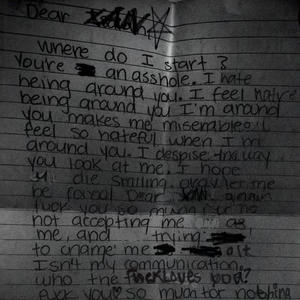 Dear
where do I start?
You're an asshole. I hate
being around you. I feel
being around you I'm around
you makes me miserable
feel so hateful when I'm
around you. I despise the way
you look at me. I hope
die smiling. let me
be Dear
fuck you so much
not accepting me as
me, and trying
to change me
Isn't my communication
who the
you so much for nothing